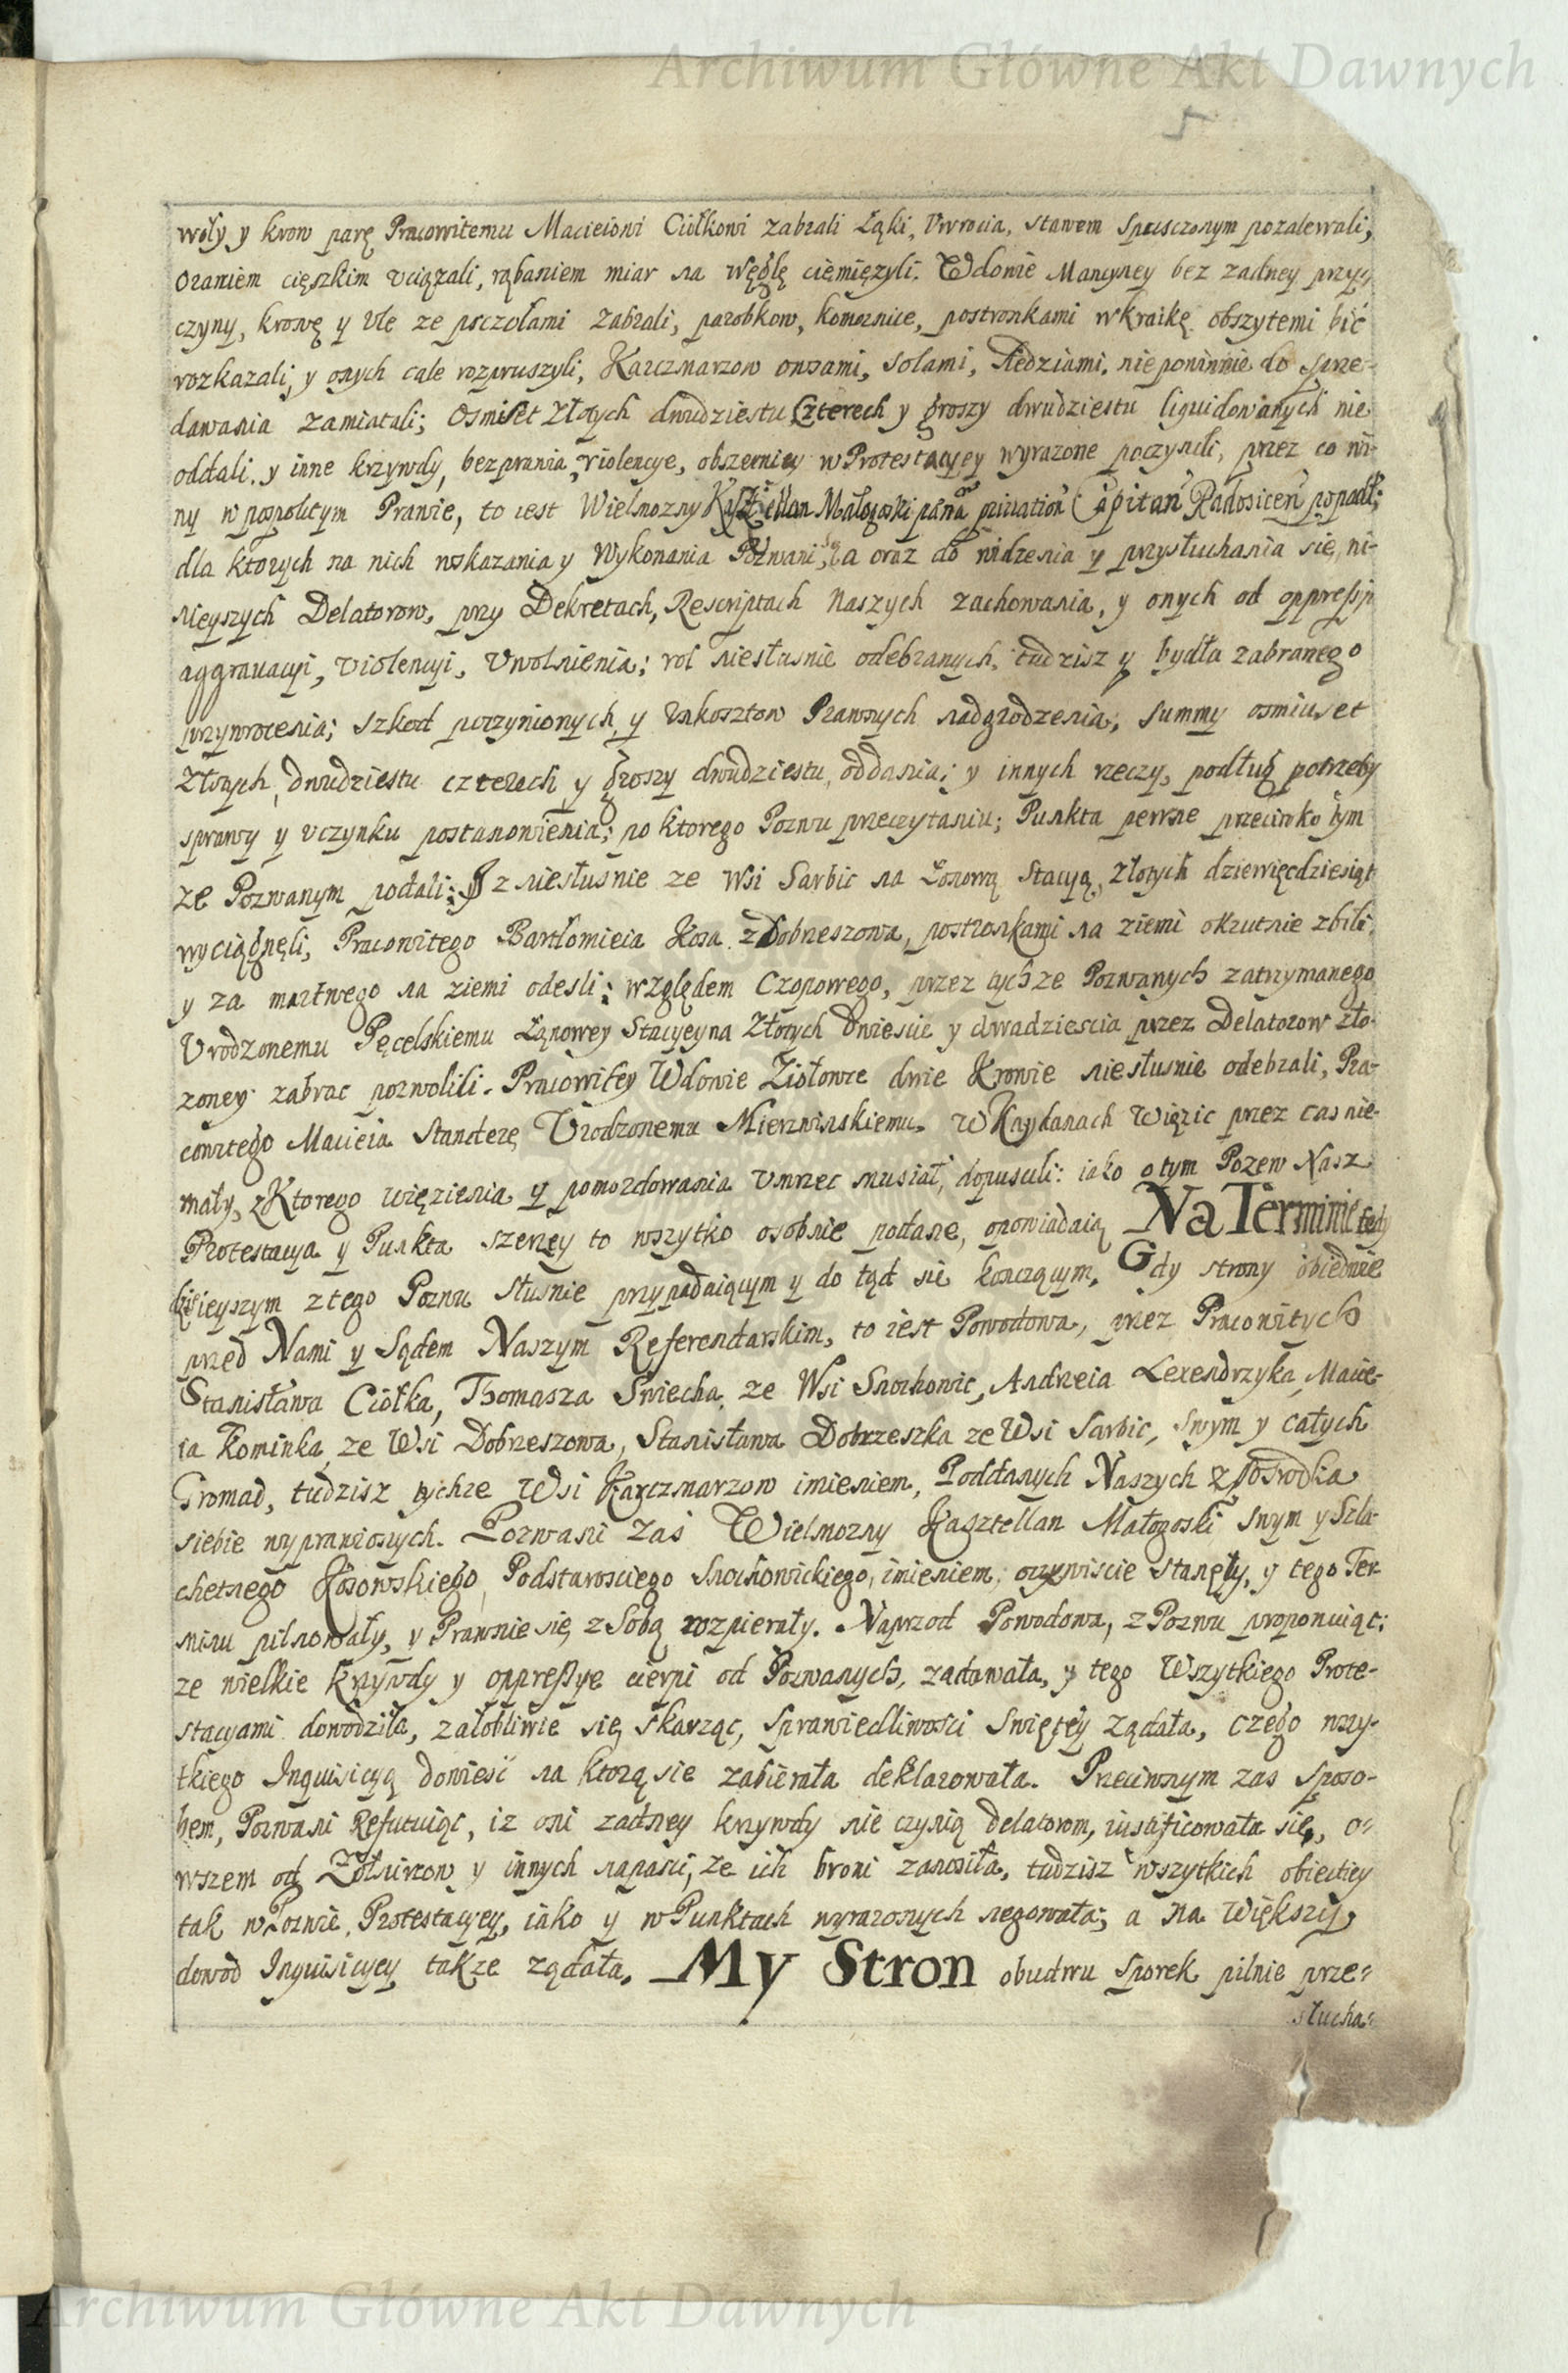 Archiwum Główne Akt Dawnych
5
woły y krow parę Pracowitemu Macieiowi Ciołkowi zabrali Łąki, Vwrocia, stawem spusczonym pozalewali,
Oraniem cięszkim vciązali, rąbaniem miar na węglę ciemięzyli. Wdowie Mancyney bez zadney przy-
czyny, krowę y vle ze psczołami zabrali, parobkow, komornice, postronkami w kraikę obszytemi bić
rozkazali, y onych cale rozpruszyli, Karczmarzow owsami, solami, śledziami, niepowinnie do sprze-
dawania zamiatali; Osmset złotych dwudziestu czterech y groszy dwudziestu liquidowanych nie
oddali, y inne krzywdy, bezprawia, violencye, obszerniey w Protestacyey wyrazone poczynili, przez co wi-
ny w pospolitym Prawie, to iest Wielmozny Małogoski privation Capitan Radosicen popadł;
dla ktorych na nich wskazania y wykonania Pozwani, a oraz do widzenia y przysłuchania się ni-
nieyszych Delatorow, przy Dekretach, Rescriptach Naszych zachowania, y onych od oppressji
aggrauacyi, violencyi, vwolnienia; rol niesłusnie odebranych, tudzisz y bydła zabranego
przywrocenia; szkod poczynionych y vkosztow Prawnych nadgrodzenia, summy osmiuset
Złotych, dwudziestu czterech y groszy dwudziestu, oddania; y innych rzeczy, podług potrzeby
sprawy y vczynku postanowienia; po ktorego Pozwu przeczytaniu; Punkta pewne przeciwko tym
ze Pozwanym podali: Jz niesłusnie ze wsi Sarbic na Łonową Stacyą, złotych dziewięcdziesiąt
wyciągnęli, Pracowitego Bartłomieia Kosa z Dobrzeszowa, postronkami na ziemi okrutnie zbili,
y za martwego na ziemi odesli; względem Czopowego, przez tychze Pozwanych zatrzymanego
Vrodzonemu Pęcelskiemu Łąnowey Stacyey na złotych dwiescie y dwadziescia przez Delatorow zło-
zoney zabrac pozwolili. Pracowitey Wdowie Ziołowze dwie Krowie niesłusnie odebrali, Pra-
cowitego Macieia Standerę Vrodzonemu Mierzwinskiemu, w Kaydanach więzic przez czas nie-
mały, z Ktorego więzienia y pomordowania vmrzec musiał, dopuscili: iako o tym Pozew Nasz
Protestacya y Punkta szerzey to wszytko osobnie podane, opowiadaią Na Terminie tedy
dzisieyszym z tego Pozwu słusnie przypadaiącym y do tąd się konczącym, Gdy strony obiedwie
przed Nami y Sądem Naszym Referendarskim, to iest Powodowa, przez Pracowitych
Stanisława Ciołka, Thomasza Swiecha, ze Wsi Snochowic, Andrzeia Lexendrzyka, Macie-
ia Kominka, ze Wsi Dobrzeszowa, Stanisława Dobrzeszka ze Wsi Sarbic, swym y całych
Gromad, tudzisz tychze Wsi Karczmarzow imieniem, Poddanych Naszych z posrodka
siebie wyprawionych. Pozwani zas Wielmozny Kasztellan Małogoski swym y Szla-
chetnego Kosowskiego, Podstarosciego Snochowickiego, imieniem, oczywiscie stanęły, y tego Ter-
minu pilnowały, y Prawnie się z Sobą rozpierały. Naprzod Powodowa, z Pozwu proponuiąc;
ze wielkie krzywdy y oppressye cierpi od Pozwanych, zadawała, y tego Wszytkiego Prote-
stacyami dowodziła, załobliwie się skarząc, sprawiedliwosci swiętey ządała, czego wszy-
tkiego Inquisicyą dowiesć na ktorą sie zabierała deklarowała. Przeciwnym zas sposo-
bem, Pozwani Refutuiąc, iz oni zadney krzywdy nie czynią delatorom, iustificowała się, o-
wszem od Zołnierzow y innych napasci, ze ich broni zanosiła, tudzisz wszytkich obiectiey
tak w Pozwie, Protestacyey, iako y w Punktach wyrazonych negowała; a na większy
dowod Inquisicyey takze ządała. My Stron obudwu sporek pilnie prze-
słucha-
Archiwum Główne Akt Dawnych